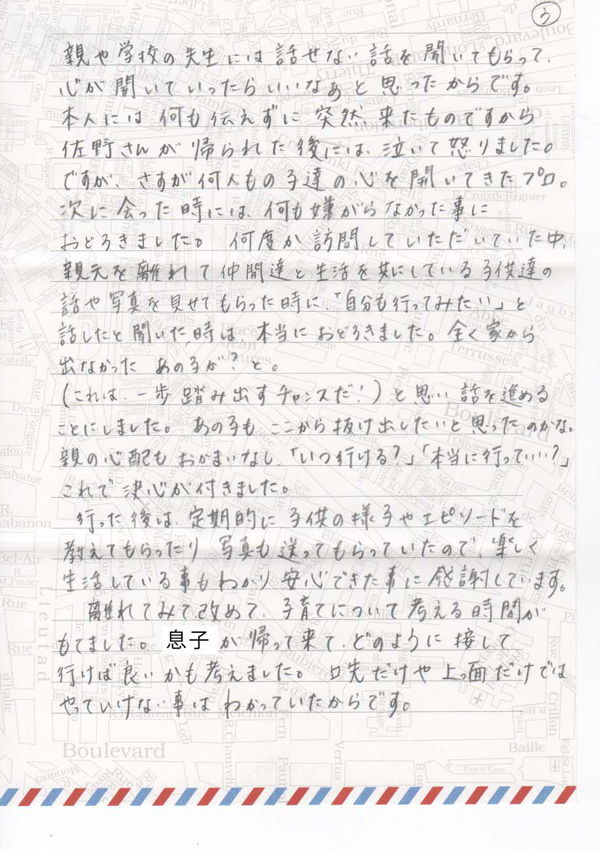 3
親や学校の先生には話せない話を聞いてもらって、
心が開いていったらいいなぁと思ったからです。
本人には何も伝えずに突然来たものですから
佐野さんが帰られた後には、泣いて怒りました。
ですが、さすが何人もの子達の心を開いてきたプロ。
次に会った時には、何も嫌がらなかった事に
おどろきました。何度か訪問していただいていた中、
親元を離れて仲間達と生活を共にしている子供達の
話や写真を見せてもらった時に「自分も行ってみたい」と
話したと聞いた時は、本当におどろきました。全く家から
出なかったあの子が?と。
(これは、一歩踏み出すチャンスだ!)と思い話を進める
ことにしました。あの子もここから抜け出したいと思ったのかな。
親の心配もおかまいなし、「いつ行ける?」「本当に行っていい?」
これで決心が付きました。
行った後は、定期的に子供の様子やエピソードを
教えてもらったり写真も送ってもらっていたので、楽しく
生活している事もわかり安心できた事に感謝しています。
離れてみて改めて、子育てについて考える時間が
もてました。息子が帰って来て、どのように接して
行けば良いかも考えました。口先だけや上っ面だけでは
やっていけない事はわかっていたからです。
Boulevard
Baille